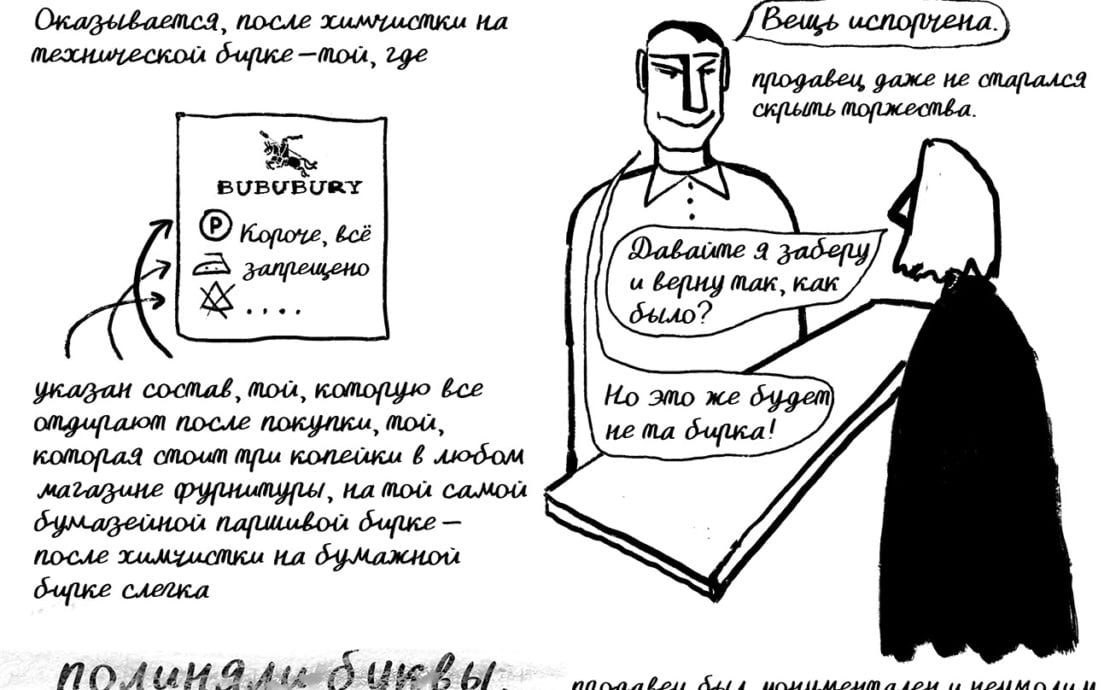 Оказывается, после химчистки на
технической бирке – той, где
BUBUBURY
P Короче, всё
запрещено
....
указан состав, той, которую все
отдирают после покупки, той,
которая стоит три копейки в любом
магазине фурнитуры, на той самой
бумазейной паршивой бирке –
после химчистки на бумажной
бирке слегка
полиняли буквы.
Вещь испорчена.
продавец даже не старался
скрыть торжества.
Давайте я заберу
и верну так, как
было?
Но это же будет
не та бирка!
продавец был монументален и неумолим